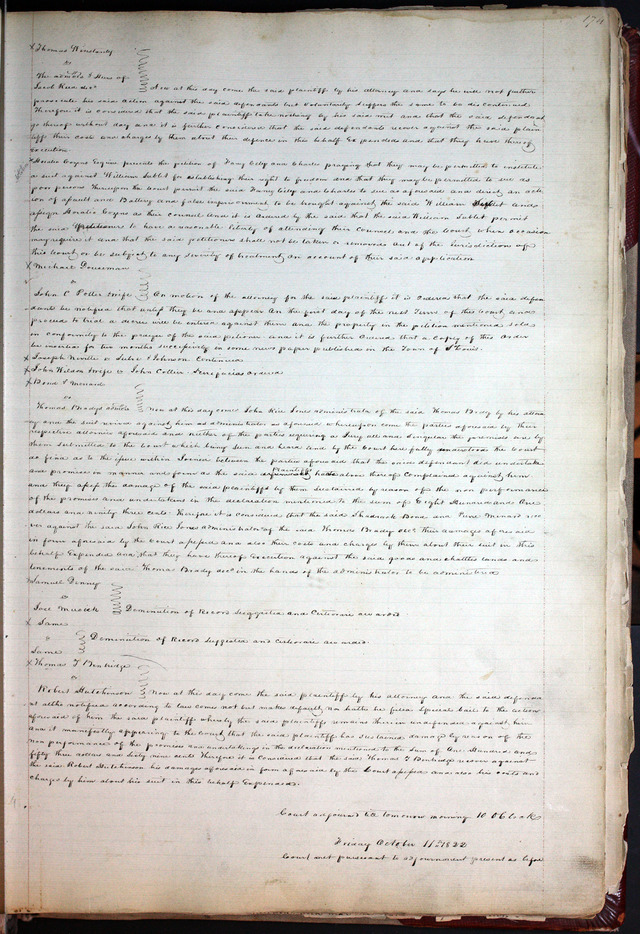 174
x Thomas
vs
The admors & Heirs of
Jacob Reed decd Now at this day come the said plaintiff by his attorney and says he will not further
prosecute his said action against the said defendants but voluntarily suffers the same to be discontinued
Therefore it is considered that the said plaintiff take nothing by his said writ and that the said defendants
go thereof without day and it is further considered that the said defendants recover against the said plain
tiff their costs and charges by them about their defence in this behalf Expended and that they have thereof
execution
x Horatio Cozens Esquire presents the petition of Fany Celey and Charles praying that they may be permitted to institute
a suit against William Sublet for establishing their right to freedom and that they may be permitted to sue as
poor persons Thereupon the Court permit the said Fany Celey and Charles to sue as aforesaid and direct an acti
on of assault and Battery and false imprisonment to be brought against the said William Sublet and
assign Horatio Cozens as their counsel and it is ordered by the said that the said William Sublet permit
the said petitioners to have a reasonable liberty of attending their Counsel and the Court when occasion
may require it and that the said petitioners shall not be taken or removed out of the Jurisdiction of
this Court or be subject to any severity of treatment on account of their said application
x Michael Dousman
vs
John C Potter & wife On motion of the attorney for the said plaintiff it is ordered that the said defen
dants be notified that unless they be and appear on the first day of the next Term of this Court and
proceed to trial a decree will be entered against them and the property in the petition mentioned sold
in conformity to the prayer of the said petioner and it is further Ordered that a Copy of this Order
be inserted for two months successively in some news paper published in the Town of St Louis.
x Joseph Neville vs & Johnson Continued
x John Wilson & wife vs John Collier Scirefacias ordered
x Bond & Menard
vs
Thomas Bradys admors Now at this day come John Rice Jones administrator of the said Thomas Brady by his attor
ney and the suit revived against him as administrator as aforesaid whereupon come the parties aforesaid by their
respective attornies aforesaid and neither of the parties requiring a Jury all and singular the premises are by
them submitted to the Court which being seen and heard and by the Court here fully understood the Court
do find as to the issue within Joined between the parties aforesaid that the said defendant did undertake
and promise in manner and form as the said plaintiffs have above thereof Complained against him
and they assess the damage of the said plaintiffs by them sustained by reason of the non performance
of the promises and undertakings in the declaration mentioned to the sum of Eight Hundred and One
dollars and ninety three cents. Therefore it is considered that the said Shadrach Bond and Pierre Menard reco
ver against the said John Rice Jones administrator of the said Thomas Brady decd their damages aforesaid
in form aforesaid by the Court assessed and also their costs and charges by them about their suit in this
behalf Expended and that they have thereof Execution against the said goods and chattles lands and
tenements of the said Thomas Brady decd in the hands of the administrator to be administered
x Samuel Denny
vs
Joel Musick Deminution of Record suggested and Certiorari awarded
x Same
vs Deminution of Record suggested and Certiorari awarded.
Same
x Thomas T Benbridge
vs
Robert Hutchinson Now at this day come the said plaintiff by his attorney and the said defenda
nt altho notified according to law comes not but makes default nor hath he filed Special bail to the action
aforesaid of him the said plaintiff whereby the said plaintiff remains therein undefended against him
and it manifestly appearing to the Court that the said plaintiff has sustained damage by reason of the
non performance of the promises and undertakings in the declaration mentioned to the sum of One Hundred and
fifty three dollars and sixty nine cents Therefore it is considered that the said Thomas T Benbridge recover against
the said Robert Hutchinson his damages aforesaid in form aforesaid by the Court assessed and also his costs and
charges by him about his suit in this behalf Expended.
Court adjourned till tomorrow morning 10 OClock
Friday October 11th 1822
Court met pursuant to adjournment present as before